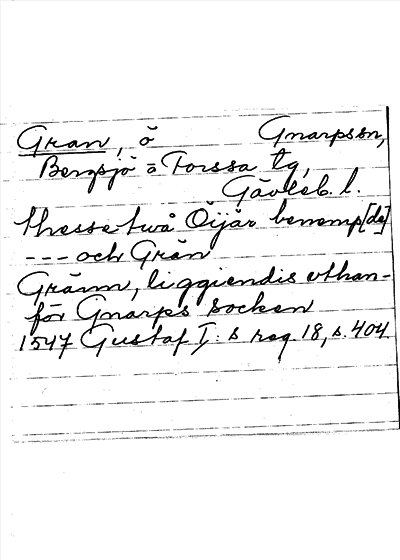 Gran, ö Gnarps sn,
Bergsjö o Forssa tg,
Gävleb. l.
thesse twå Öijar benemp[de]
--- och Grän
Gränn, liggiendis uthan-
för Gnarps socken
1547 Gustaf I:s reg. 18, s. 404.